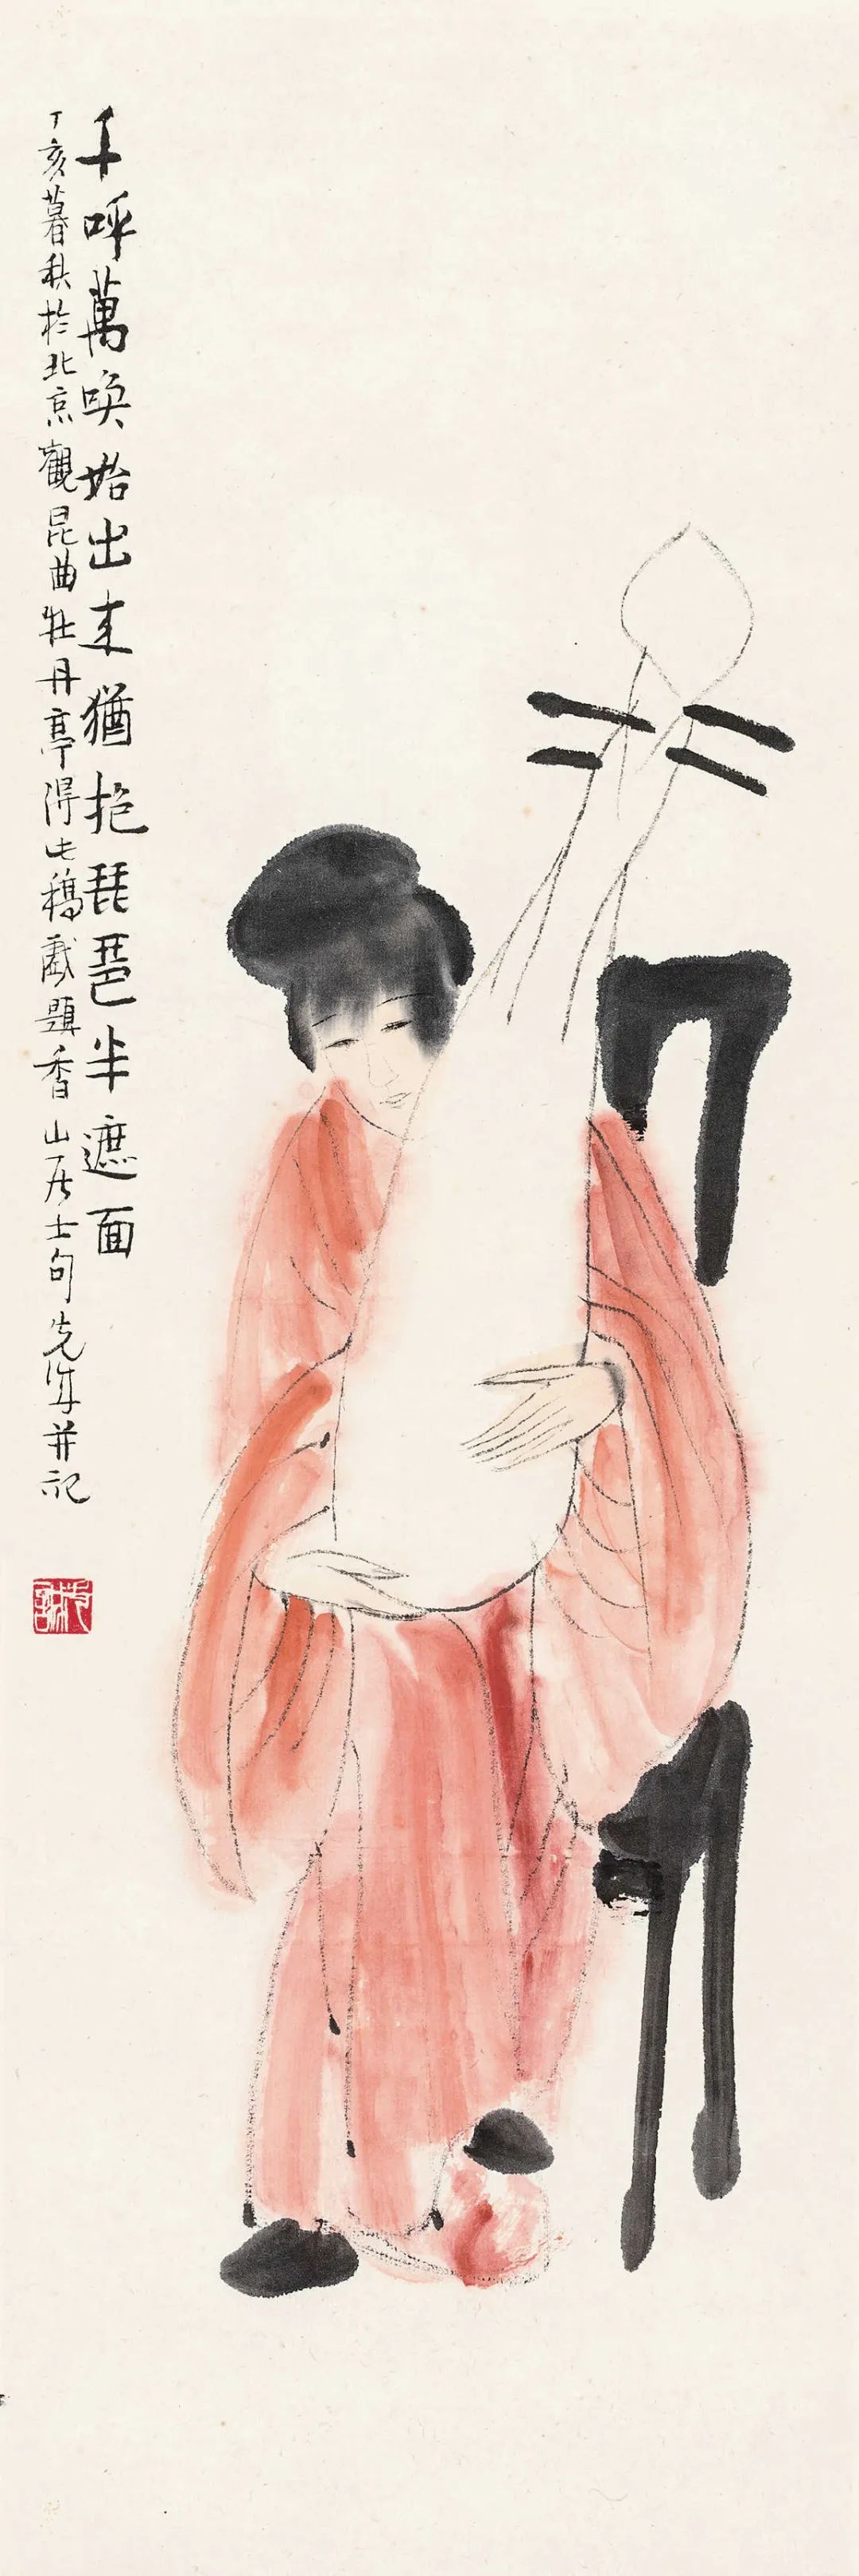 千呼萬喚始出来猶抱琵琶半遮面
丁亥暮秋於北京觀昆曲牡丹亭得此稿戲題香山居士句先生并記